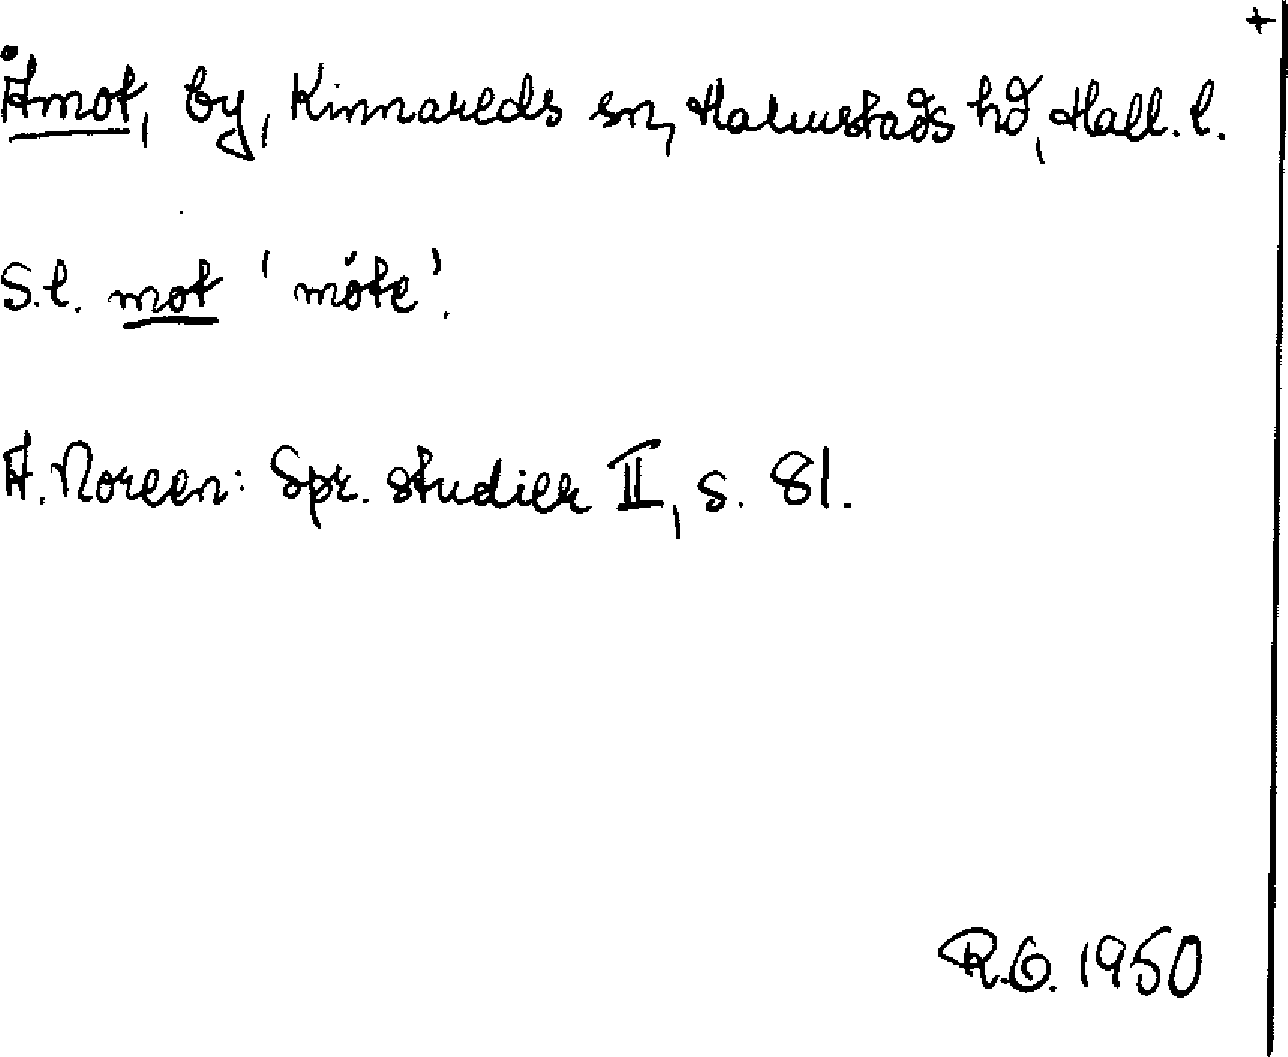 +
Åmot, by, Kinnareds sn, Halmstads hd, Hall. l.
S.l. mot 'möte'.
A. Noreen: Spr. studier II, s. 81.
R.G. 1950